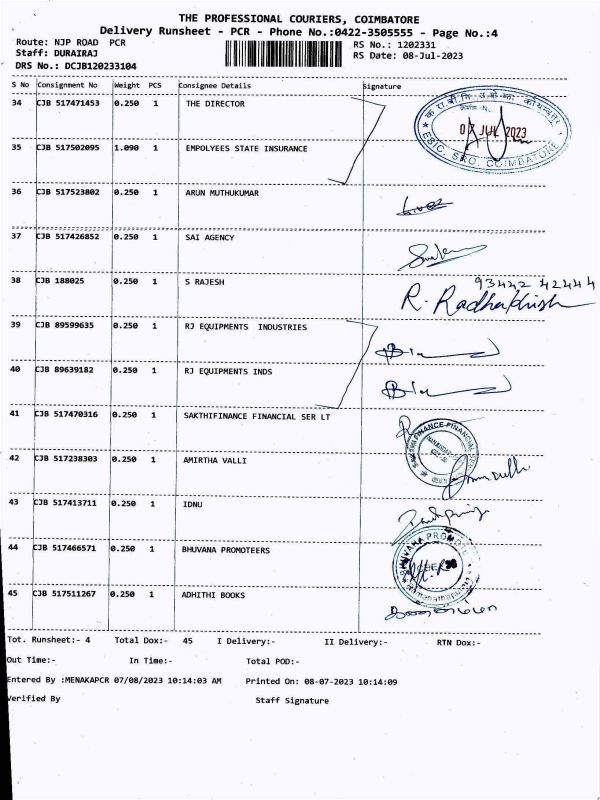 THE PROFESSIONAL COURIERS, COIMBATORE
Delivery Runsheet - PCR - Phone No.:0422-3505555 - Page No.:4
Route: NJP ROAD PCR
RS No.: 1202331
Staff: DURAIRAJ
RS Date: 08-Jul-2023
DRS No.: DCJB120233104
S No Consignment No Weight PCS Consignee Details Signature
34 CJB 517471453 0.250 1 THE DIRECTOR
07 JUL 2023
ESIC, SRO, COIMBATORE
35 CJB 517502095 1.090 1 EMPOLYEES STATE INSURANCE
36 CJB 517523802 0.250 1 ARUN MUTHUKUMAR
37 CJB 517426852 0.250 1 SAI AGENCY
38 CJB 188025 0.250 1 S RAJESH
93442 42444
R. Radhakrish
39 CJB 89599635 0.250 1 RJ EQUIPMENTS INDUSTRIES
40 CJB 89639182 0.250 1 RJ EQUIPMENTS INDS
41 CJB 517470316 0.250 1 SAKTHIFINANCE FINANCIAL SER LT
42 CJB 517238303 0.250 1 AMIRTHA VALLI
43 CJB 517413711 0.250 1 IDNU
44 CJB 517466571 0.250 1 BHUVANA PROMOTEERS
BHUVANA PROMOTE
45 CJB 517511267 0.250 1 ADHITHI BOOKS
Tot. Runsheet:- 4 Total Dox:- 45 I Delivery:- II Delivery:- RTN Dox:-
Out Time:- In Time:- Total POD:-
Entered By :MENAKAPCR 07/08/2023 10:14:03 AM Printed On: 08-07-2023 10:14:09
Verified By Staff Signature